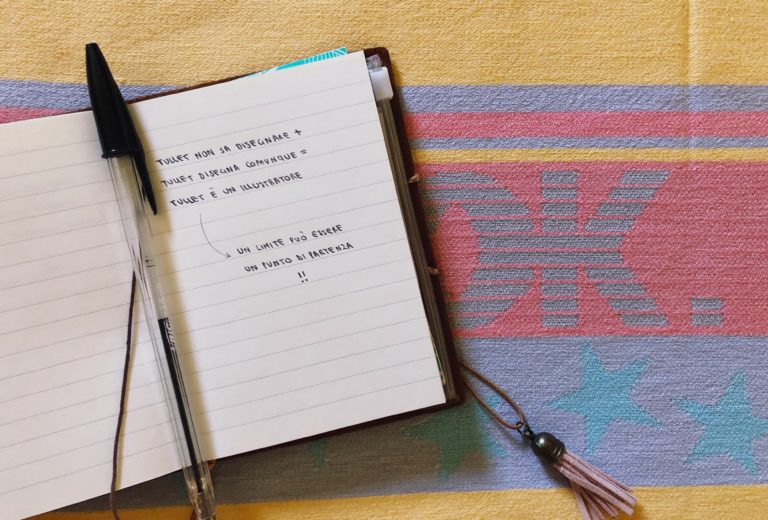 TULLET NON SA DISEGNARE +
TULLET DISEGNA COMUNQUE =
TULLET È UN ILLUSTRATORE
UN LIMITE PUÒ ESSERE
UN PUNTO DI PARTENZA
!!
OK.